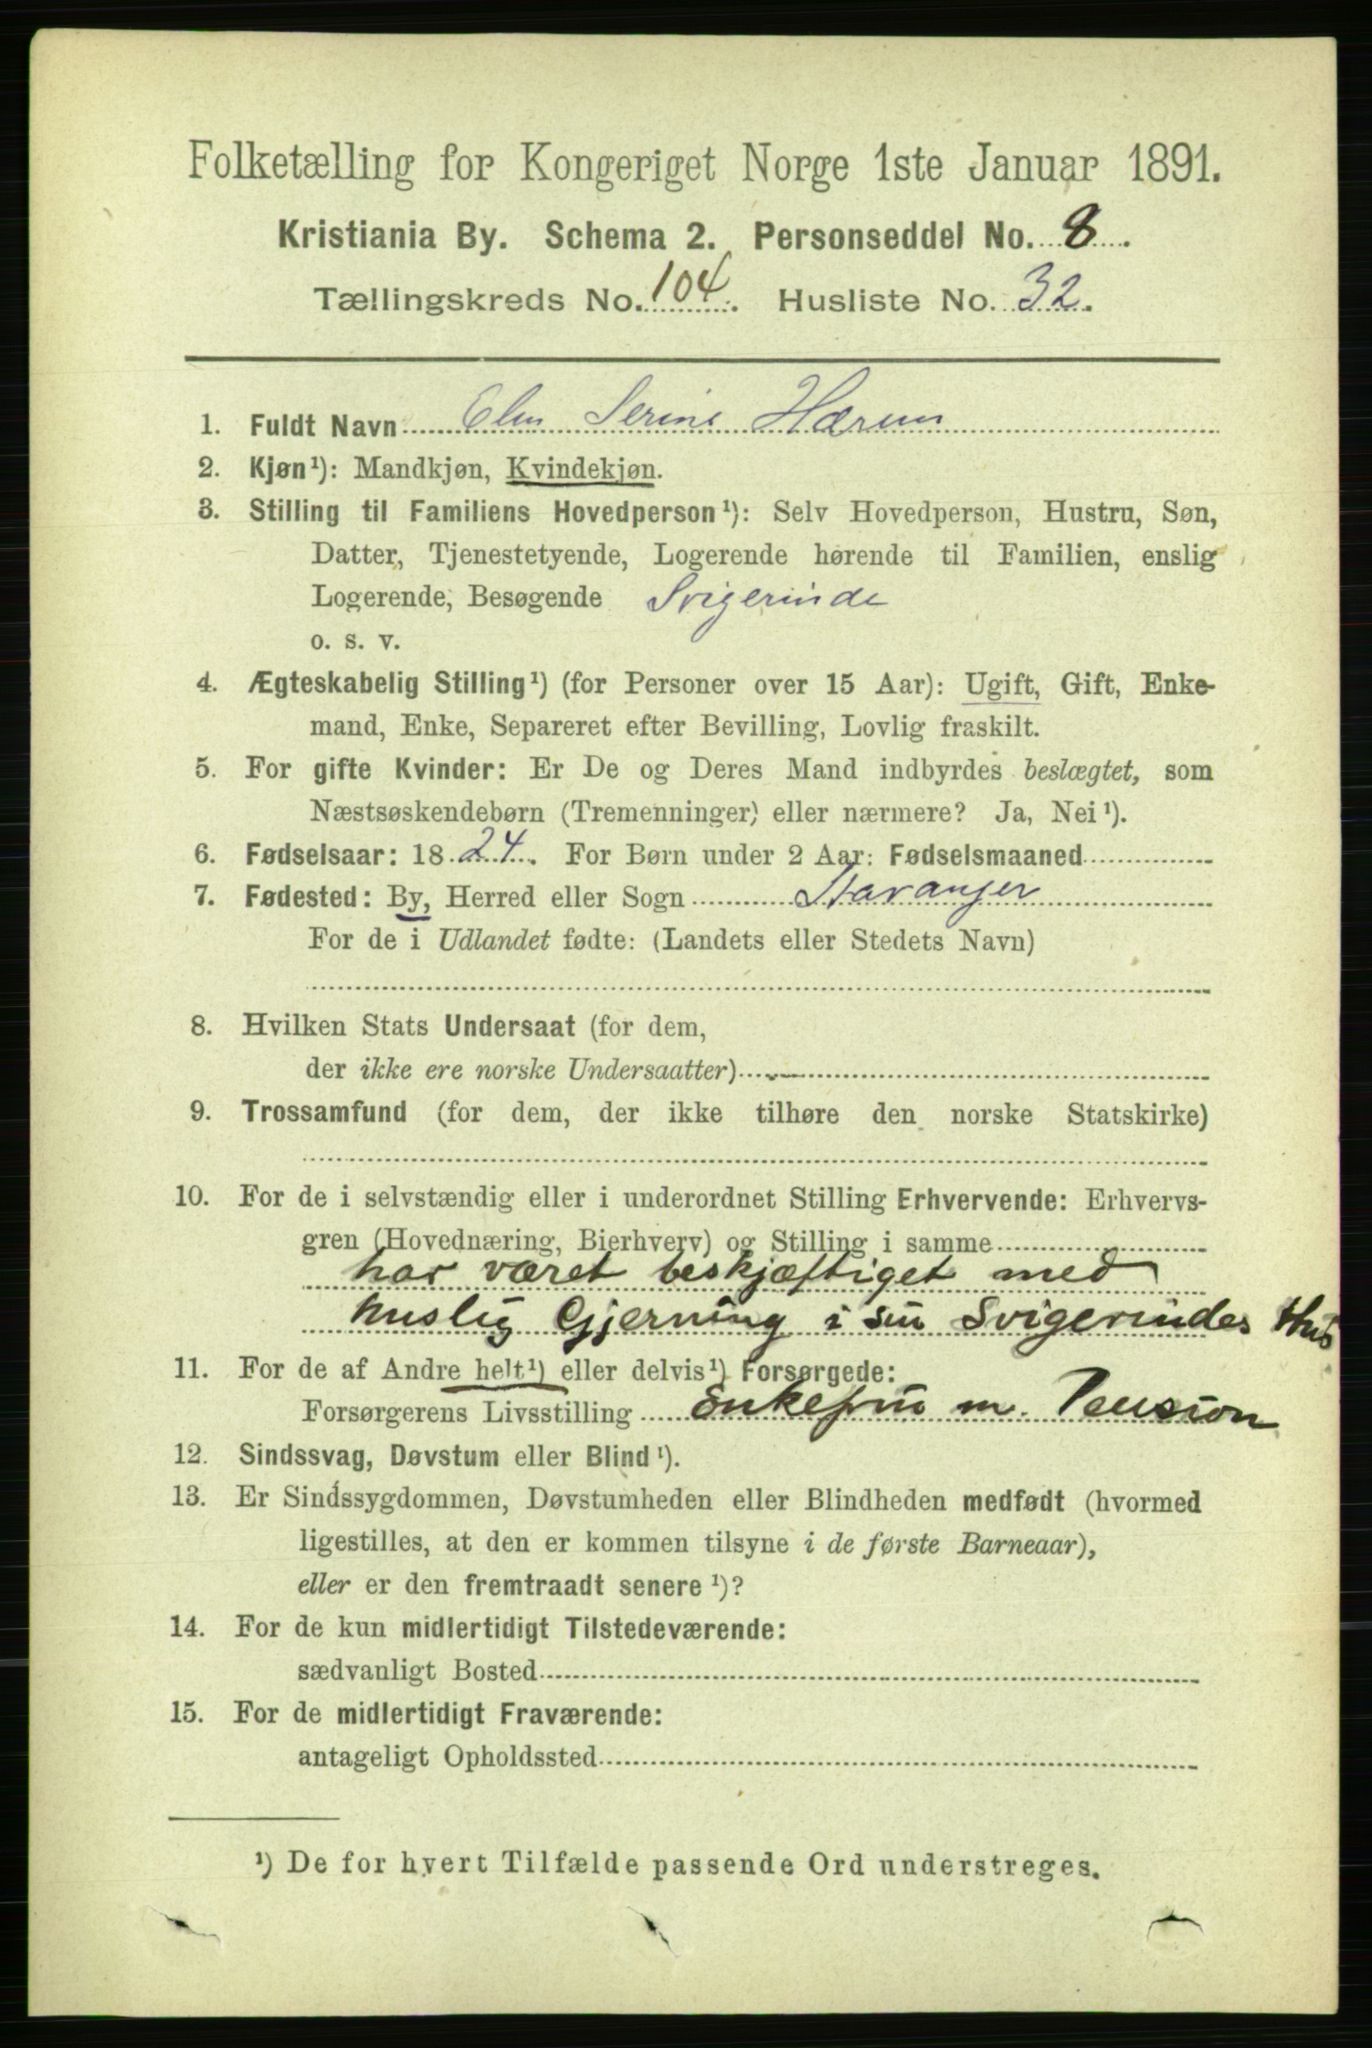 Folketælling for Kongeriget Norge 1ste Januar 1891.
Kristiania By. Schema 2. Personseddel No. 8.
Tællingskreds No. 104. Husliste No. 32.
1. Fuldt Navn Elen Serine Hærem
2. Kjøn¹): Mandkjøn, Kvindekjøn.
3. Stilling til Familiens Hovedperson¹): Selv Hovedperson, Hustru, Søn,
Datter, Tjenestetyende, Logerende hørende til Familien, enslig
Logerende, Besøgende Svigerinde
o. s. v.
4. Ægteskabelig Stilling¹) (for Personer over 15 Aar): Ugift, Gift, Enke-
mand, Enke, Separeret efter Bevilling, Lovlig fraskilt.
5. For gifte Kvinder: Er De og Deres Mand indbyrdes beslægtet, som
Næstsøskendebørn (Tremenninger) eller nærmere? Ja, Nei¹).
6. Fødselsaar: 1824. For Børn under 2 Aar: Fødselsmaaned
7. Fødested: By, Herred eller Sogn Stavanger
For de i Udlandet fødte: (Landets eller Stedets Navn)
8. Hvilken Stats Undersaat (for dem,
der ikke ere norske Undersaatter)
9. Trossamfund (for dem, der ikke tilhøre den norske Statskirke)
10. For de i selvstændig eller i underordnet Stilling Erhvervende: Erhvervs-
gren (Hovednæring, Bierhverv) og Stilling i samme
har været beskjæftiget med
huslig Gjerning i sin Svigerindes Hus
11. For de af Andre helt¹) eller delvis¹) Forsørgede:
Forsørgerens Livsstilling Enkefru m. Pension
12. Sindssvag, Døvstum eller Blind¹).
13. Er Sindssygdommen, Døvstumheden eller Blindheden medfødt (hvormed
ligestilles, at den er kommen tilsyne i de første Barneaar),
eller er den fremtraadt senere¹)?
14. For de kun midlertidigt Tilstedeværende:
sædvanligt Bosted
15. For de midlertidigt Fraværende:
antageligt Opholdssted
¹) De for hvert Tilfælde passende Ord understreges.